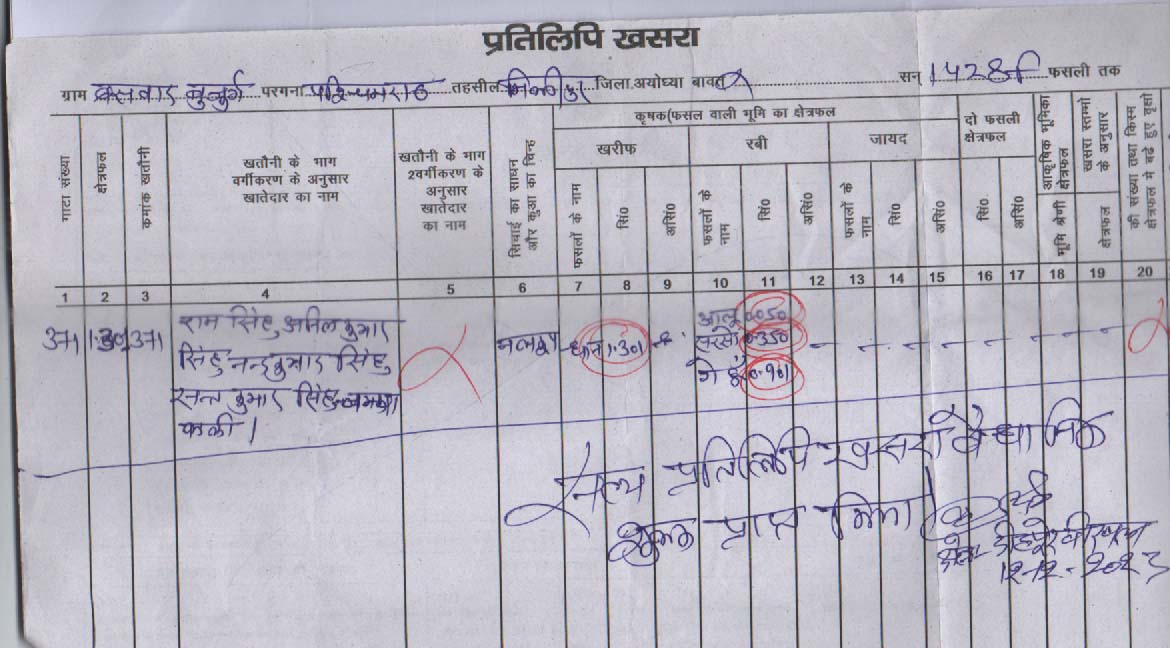 प्रतिलिपि खसरा
ग्राम बुजुर्ग परगना पश्चिमराठ तहसील मिल्कीपुर जिला.अयोध्या बावत सन् 1428 फसली तक
गाटा संख्या
क्षेत्रफल
कमांक खतौनी
खतौनी के भाग
वर्गीकरण के अनुसार
खातेदार का नाम
खतौनी के भाग
2वर्गीकरण के
अनुसार
खातेदार
का नाम
सिचाई का साधन
और कुआ का चिन्ह
कृषक(फसल वाली भूमि का क्षेत्रफल
खरीफ
रबी
जायद
फसलों के नाम
सिं0
असिं0
फसलों के
नाम
सिं0
असिं0
फसलों के
नाम
सिं0
असिं0
दो फसली
क्षेत्रफल
सिं0
असिं0
आकृषिक भूमिका
क्षेत्रफल
भूमि श्रेणी
खसरा स्तम्भो
के अनुसार
क्षेत्रफल
की संख्या तथा किस्म
क्षेत्रफल मे बडे हुए वृक्षो
1 2 3 4 5 6 7 8 9 10 11 12 13 14 15 16 17 18 19 20
371 1.301 371 राम सिंह, अनिल कुमार नलकूप धान 1.301 आलू 0.050
सिंह नन्दकुमार सिंह, सरसो 0.350
सन्त कुमार सिंह गेहूँ 0.901
सत्य प्रतिलिपि खसरा
शुल्क प्राप्त किया
12-12-2023